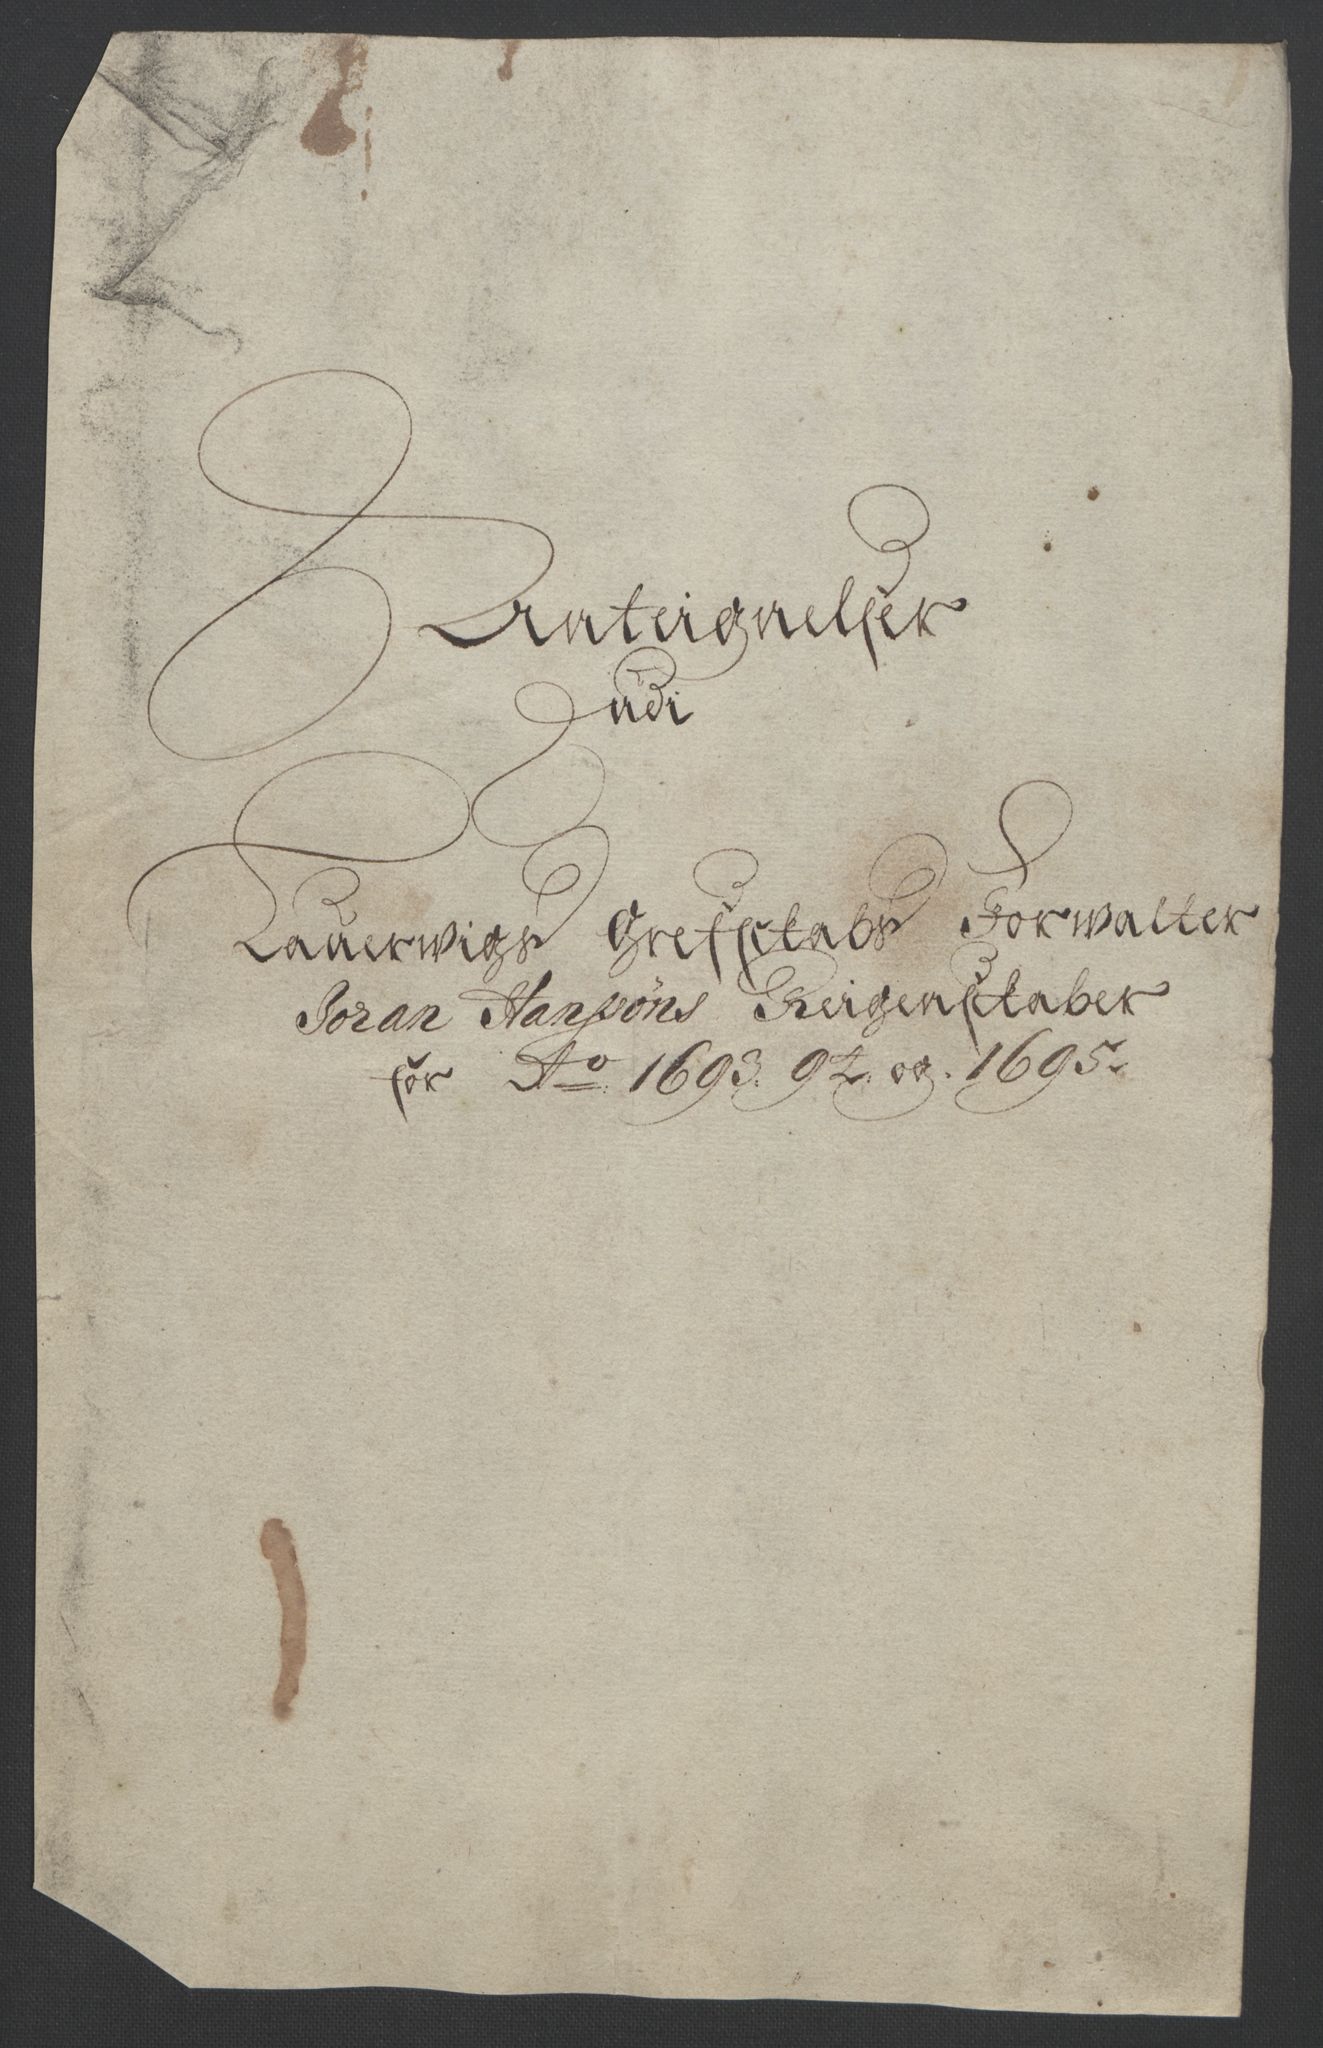 Anteignelser
udi
Lauerwigs Grefschabs Forwalter
Joran Hanssøns Reigenschaber
for Ao 1693. 94. og. 1695.